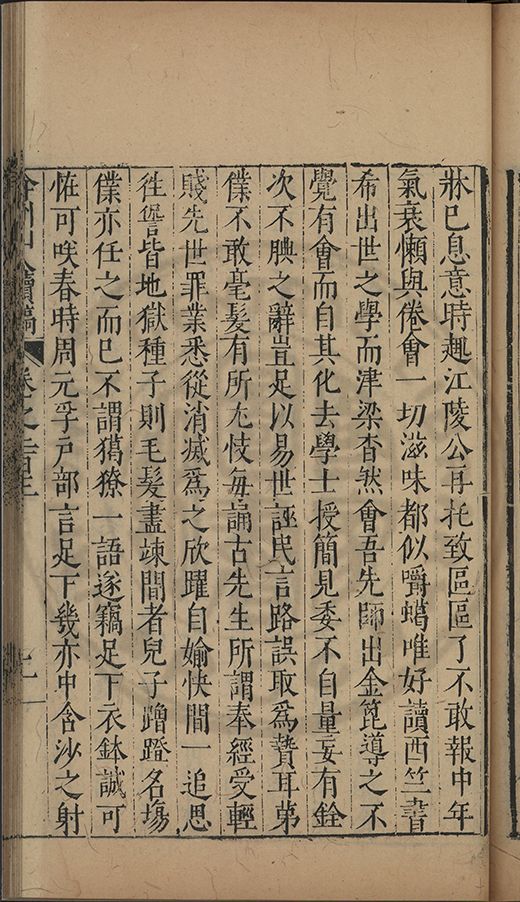 牀已息意時趣江陵公再托致區區了不敢報中年
氣衰懶與倦會一切滋味都似嚼蠟唯好讀西竺書
希出世之學而津梁杳然會吾先師出金箆導之不
覺有會而自其化去學士授簡見委不自量妄有銓
次不腆之辭豈足以易世誣民言路誤取爲贄耳第
僕不敢毫髮有所尤忮每誦古先生所謂奉經受輕
賤先世罪業悉從消滅爲之欣躍自媮快間一追思
徃嚳皆地獄種子則毛髮盡竦間者兒子蹭蹬名塲
僕亦任之而已不謂獦獠一語遂竊足下衣鉢誠可
恠可咲春時周元孚戸部言足下幾亦中含沙之射
弇州山人續稿 卷之